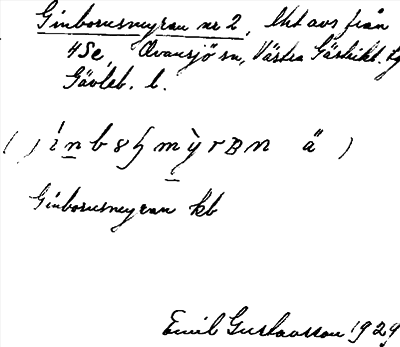 Ginborusmyran nr 2, lht avs från
4Se, Ovansjö sn, Västra Gästrikl. tg
Gävleb. l.
Ginborusmyran kb
Emil Gustavsson 1929